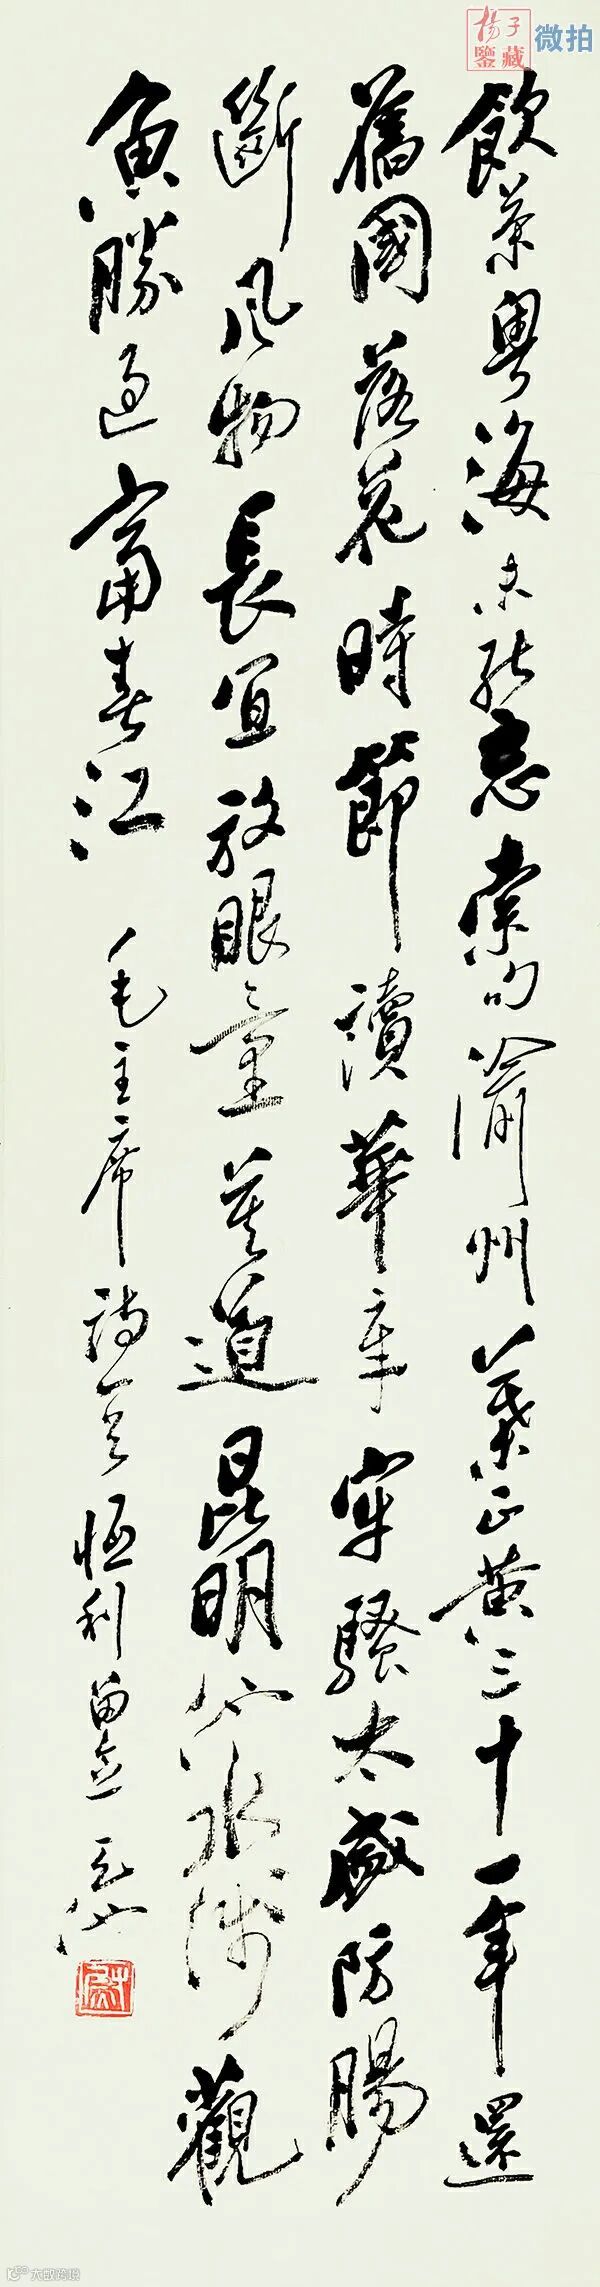 飲茶粵海未能忘索句渝州葉正黃三十一年還
舊國落花時節讀華章牢騷太盛防腸
斷風物長宜放眼量莫道昆明池水淺觀
魚勝過富春江
毛主席詩
恒利留念
楊子
鑒藏
微拍
大数跨境